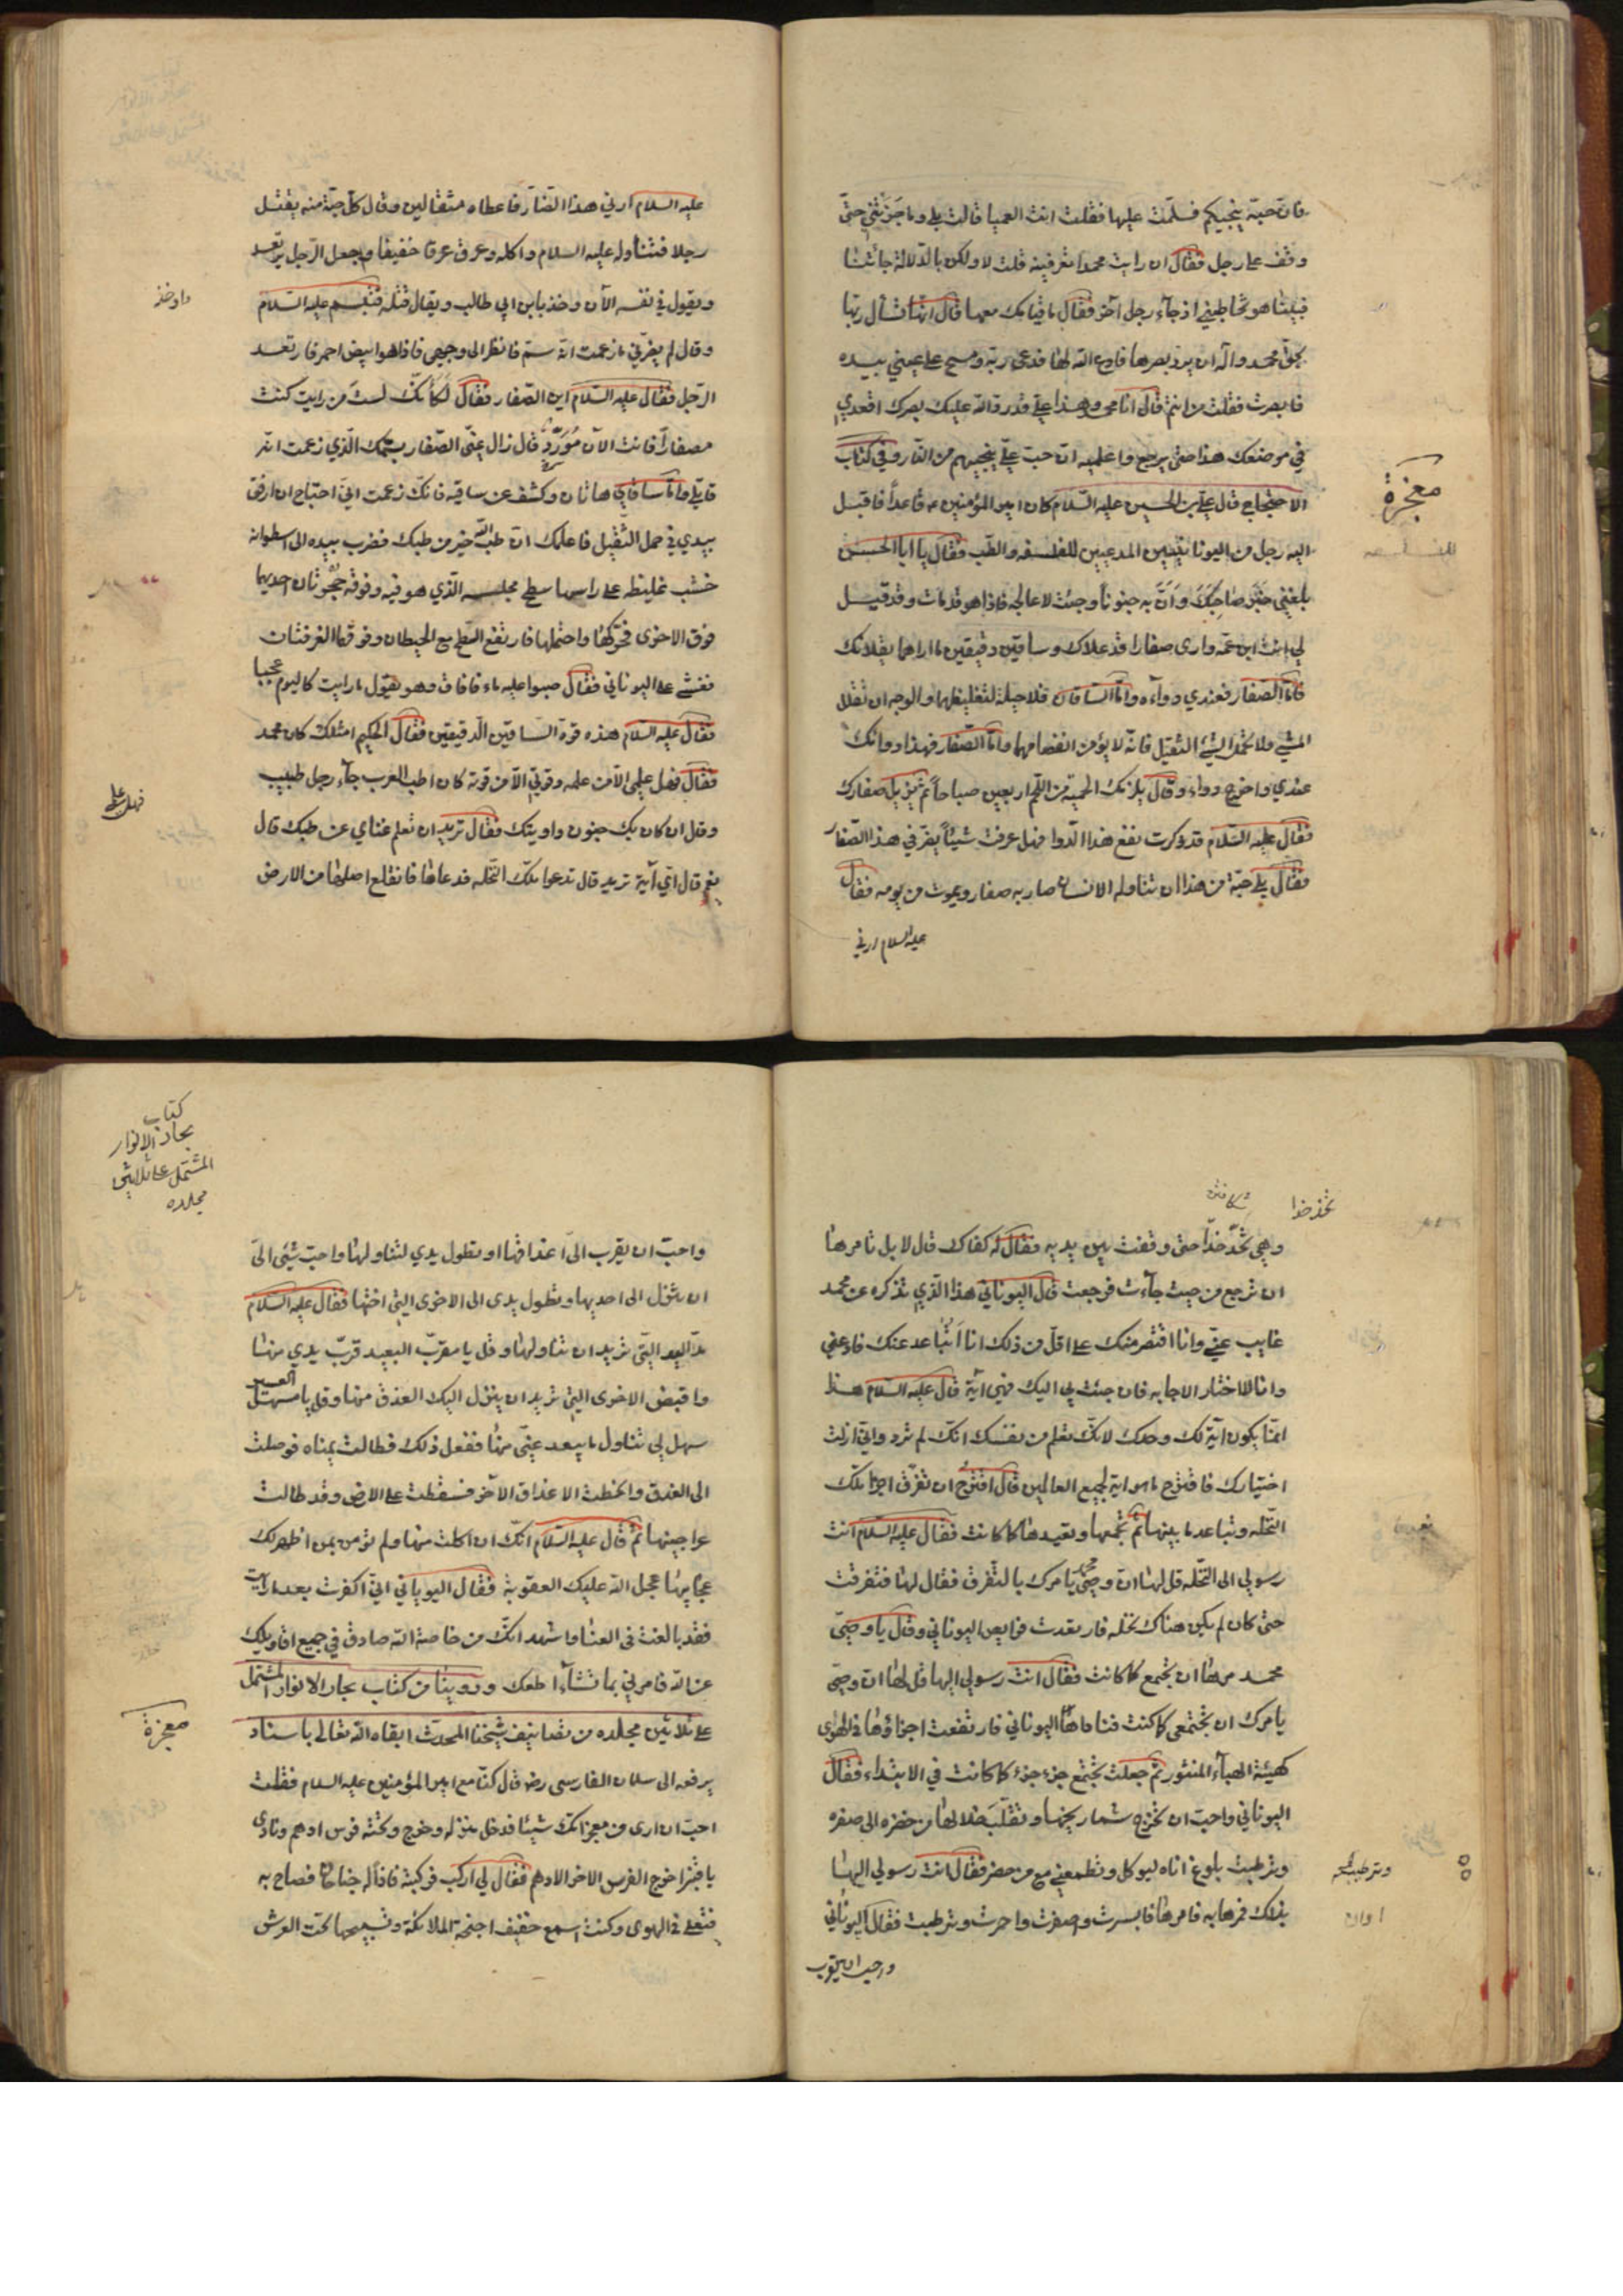 فان حبه ينجيكم فسلمت عليها فقلت انت العميا قالت بلى وما جزتني حتى
وقف على رجل فقال ان رايت محمدا تعرفينه قلت لا ولكن بالدلالة جائتنا
فبينا هو يخاطبني اذ جاء رجل آخر فقال ما قيامك معها قال انها تسأل ربها
بحق محمد واله ان يرد بصرها فادع الله لها فدعى ربه ومسح على عيني بيده
فابصرت فقلت من انتم قال انا محمد وهذا علي قد رد الله عليك بصرك اقعدي
في موضعك هذا حتى يرجع واعلميه ان حب علي ينجيهم من النار وفي كتاب
الاحتجاج قال علي بن الحسين عليه السلام كان امير المؤمنين ع قاعداً فاقبل
معجزة
اليه رجل من اليونانيين المدعيين للفلسفه والطب فقال يا ابا الحسن
بلغني خبر صاحبك وان به جنونا وجئت لاعالجه فاذا هو قد مات وقد قيل
لي انت ابن عمه وارى صفارا قد علاك وساقين دقيقين ما اراهما يقلانك
فاما الصفار فعندي دواءه واما الساقان فلا حيلة لتغليظهما والوجه ان تقلل
المشي ولا تحمل الشئ الثقيل فانه لا يؤمن انقصامهما واما الصفار فهذا دوائك
عندي واخرج دواء وقال يلزمك الحمية من اللحم اربعين صباحاً ثم يزيل صفارك
فقال عليه السلام قد ذكرت نفع هذا الدوا فهل عرفت شيئاً يضرني هذا الصفار
فقال بلى حبة من هذا ان تناوله الانسان صار به صفار ويموت من يومه فقال
عليه السلام ارني
عليه السلام ارني هذا الضار فاعطاه مثقالين وقال كل حبة منه يقتل
رجلا فتناوله عليه السلام واكله وعرق عرقا خفيفا وجعل الرجل يرتعد
ويقول في نفسه الآن وخذ بابن ابي طالب ويقال قتله فتبسم عليه السلام
وقال لم يضرني ما زعمت انه سم فانظر الى وجهي فاذا هو ابيض احمر فارتعد
الرجل فقال عليه السلام اين الصفار فقال لكأنك لست من رايت كنت
مصفاراً فانت الآن مورد قال زال عني الصفار بسمك الذي زعمت انه
قاتلي واما ساقاي هاتان وكشف عن ساقيه فانك زعمت اني احتاج ان ارفق
ببدني في حمل الثقيل فاعلمك ان طب الله خير من طبك فضرب بيده الى اسطوانه
خشب غليظه على راسها سطح مجلسه الذي هو فيه وفوقه حجرتان احديهما
فوق الاخرى فحركها واحتملها فارتفع السطح مع الحيطان وفوقها الغرفتان
فغشي على اليوناني فقال صبوا عليه ماء فافاق وهو يقول ما رايت كاليوم عجبا
فقال عليه السلام هذه قوة الساقين الدقيقين فقال الحكيم امثلك كان محمد
فقال فهل علمي الا من علمه وقوتي الا من قوته كان اطب العرب جاء رجل طبيب
وقال ان كان بك جنون داويتك فقال تريد ان تعلم غناي عن طبك قال
نعم قال اي آية تريد قال تدعوا تلك النخله فدعاها فانقلع اصلها من الارض
تخذ خدا
وهي تخد خدا حتى وقفت بين يديه فقال له كفاك قال لا بل تامرها
ان ترجع من حيث جاءت فرجعت قال اليوناني هذا الذي تذكره عن محمد
غايب عني وانا اقتصر منك على اقل من ذلك انا اتباعد عنك فادعني
وانا لا اختار الاجابه فان جئت بي اليك فهي اية قال عليه السلام هذا
انما يكون اية لك وحدك لانك تعلم من نفسك انك لم ترد واني ازلت
اختيارك فاقترح ما هو اية لجميع العالمين قال اقترح ان تفرق اجزا تلك
النخله وتباعد ما بينها ثم تجمعها وتعيدها كما كانت فقال عليه السلام انت
رسولي الى النخله قل لها ان وصي محمد يامرك بالتفرق فقال لها فتفرقت
حتى كان لم يكن هناك نخله فارتعدت فرايص اليوناني وقال يا وصي
محمد مرها ان تجتمع كما كانت فقال انت رسولي اليها قل لها ان وصي
يامرك ان تجتمعي كما كنت فناداها اليوناني فارتفعت اجزاؤها في الهوى
كهيئة الهباء المنثور ثم جعلت تجتمع جزء جزء كما كانت في الابتداء فقال
اليوناني واحب ان تخرج شماريخها وتقلب خلالها من خضره الى صفره
وترطبت بلوغ اناه ليوكل وتطعمني مع من حضر فقال انت رسولي اليها
بذلك فمرها به فامرها فابسرت واصفرت واحمرت وترطبت فقال اليوناني
واحب ان يقرب
كتاب
بحار الانوار
المشتمل على ثلاثين
مجلده
واحب ان يقرب الي اعذاقها او يطول يدي لتناولها واحب شيئ الي
ان ينزل الى احديها وتطول يدي الى الاخرى التي اختها فقال عليه السلام
مد اليد التي تريد ان تناولها وقل يا مقرب البعيد قرب يدي منها
واقبض الاخرى التي تريد ان ينزل اليك العذق منها وقل يا مسهل العسير
سهل لي تناول ما يبعد عني منها ففعل ذلك فطالت يمناه فوصلت
الى العذق وانحطت الاعذاق الآخر فسقطت على الارض وقد طالت
عراجينها ثم قال عليه السلام انك ان اكلت منها ولم تؤمن بمن اظهر لك
عجايبها عجل الله عليك العقوبة فقال اليوناني اني اكفرت بعد ما رايت
فقد بالغت في العنا واشهد انك من خاصة الله صادق في جميع اقاويلك
عن الله فامرني بما تشاء اطعك وروينا من كتاب بحار الانوار المشتمل
على ثلاثين مجلده من تصانيف شيخنا المحدث ابقاه الله تعالى باسناد
معجزة
يرفعه الى سلمان الفارسي رضه قال كنا مع امير المؤمنين عليه السلام فقلت
احب ان ارى من معجزاتك شيئا فدخل منزله وخرج وتحته فرس ادهم ونادى
يا قنبر اخرج الفرس الاخر الادهم فقال لي اركب فركبته فاذا له جناحان فصاح به
فتعلى في الهوى وكنت اسمع حفيف اجنحة الملائكة وتسبيحها تحت العرش